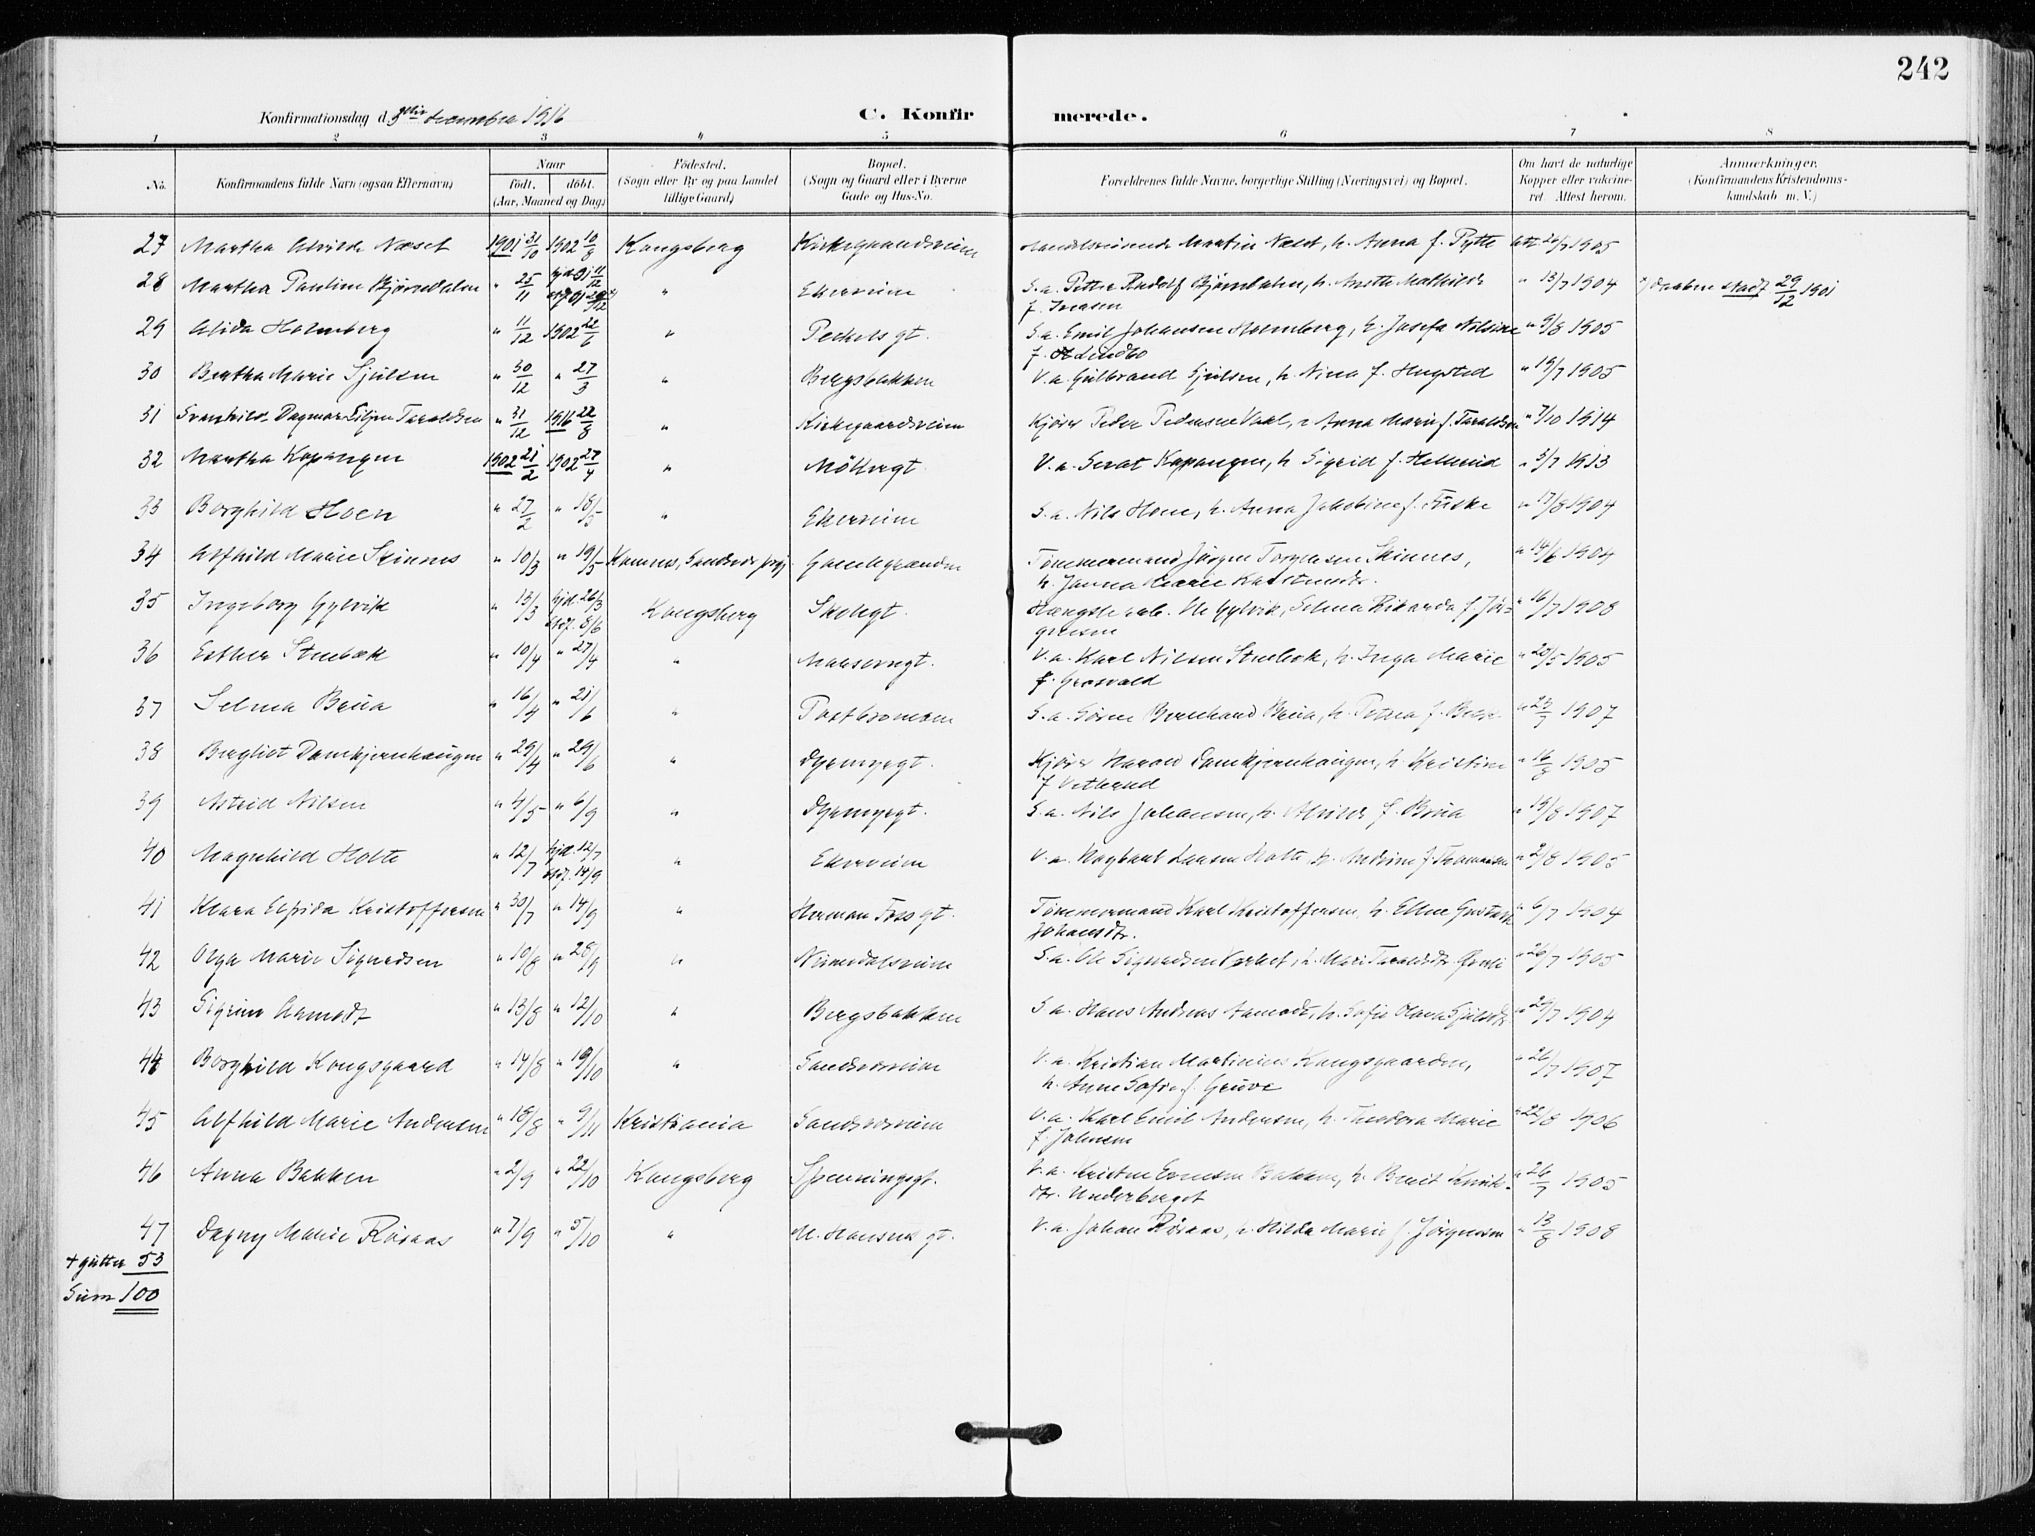 242
Konfirmationsdag d. 3die december 1916
C. Konfirmerede.
1 2 3 4 5 6 7 8
No.
Konfirmandens fulde Navn (ogsaa Efternavn)
Naar
født. døbt.
(Aar, Maaned og Dag)
Födested.
(Sogn eller By og paa Landet
tillige Gaard)
Bopæl.
(Sogn og Gaard eller i Byerne
Gade og Hus-No.
Forældrenes fulde Navne, borgerlige Stilling (Næringsvei) og Bopæl.
Om havt de naturlige
Kopper eller vakcine-
ret. Attest herom.
Anmærkninger.
(Konfirmandens Kristendoms-
kundskab m. V.)
27 Martha Alvilde Næset 1901 31/10 1902 10/8 Kongsberg Kirkegaardsveien Handelsreisende Martin Næset, h. Anna f. Pytte att 1905
28 Martha Pauline Bjørndalen " 25/11 hjd. 01 11/12 stadf. 01 29/12 " Ekerveien S.a. Petter Rudolf Bjørndalen, h. Anette Mathilde " 13/7 1904 *) Daaben stadf. 29/12 1901
f. Ivarsen
29 Alida Holmberg " 11/12 1902 22/6 " Peckels gt. S.a. Emil Johansen Holmberg, h. Josefa Nilsine " 9/8 1905
f. Lindbo
30 Bertha Marie Gjulsen " 30/12 " 27/3 " Bergsbakken V.a. Gulbrand Gjulsen, h. Nina f. Hugsted " 19/7 1905
31 Svanhild Dagmar Eiljen Taraldsen " 31/12 1916 22/8 " Kirkegaardsveien Kjører Peder Pedersen Vael, Anna Marie f. Taraldsen " 7/10 1914
32 Martha Kopangen 1902 21/2 1902 27/4 " Møllergt. V.a. Sevat Kopangen, h. Sigrid f. Hellerud " 5/7 1913
33 Borghild Hoen " 27/2 " 18/5 " Ekerveien S.a. Nils Hoen, h. Anna Jakobine f. Fiske " 17/8 1904
34 Alfhild Marie Skinnes " 10/3 " 19/5 Komnes, Sandsvær prgj. Gamlegrænden Tømmermand Jørgen Torgersen Skinnes, " 14/6 1904
h. Janna Marie Karstensdr.
35 Ingeborg Gylvik " 13/3 hjd. 26/3 stadf. 8/6 Kongsberg Skolegt. Ole Gylvik, Selma Rikarda f. Jør- " 16/7 1908
gensen
36 Esther Stenbæk " 10/4 " 27/4 " V.a. Karl Nilsen Stenbæk, h. Inga Marie " 20/5 1905
f. Grosvold
37 Selma Brua " 16/4 " 21/6 " S.a. Søren Bernhard Brua, h. Petra f. " 23/7 1907
38 Bergliot Damkjernhaugen " 29/4 " 29/6 " Dyrmyrgt. Kjører Harald Damkjernhaugen, h. Kristine " 16/8 1905
f. Vetterud
39 Astrid Nilsen " 4/5 " 6/9 " Dyrmyrgt. S.a. Nils Johansen, h. Alvilde f. Brua " 19/8 1907
40 Magnhild Holte " 12/7 hjd. 12/7 stadf. 14/9 " Ekerveien V.a. Nagbart Larsen Holte, h. Andrine f. Thomassen " 2/8 1905
41 Klara Elfrida Kristoffersen " 30/7 " 14/9 " Herman Foss gt. Tømmermand Karl Kristoffersen, h. Elen Gustava " 6/7 1904
Johansdtr.
42 Olga Marie Sigurdsen " 10/8 " 28/9 " Numedalsveien S.a. Ole Sigurdsen h. Mari Taraldsdtr. " 26/7 1905
43 Sigrun Aamodt " 13/8 " 12/10 " Bergsbakken S.a. Hans Andreas Aamodt, h. Sofie Olava Gjulsdtr. " 29/7 1904
44 Borghild Kongsgaard " 14/8 " 19/10 " Sandsværveien V.a. Kristian Martinius Kongsgaarden, " 26/7 1907
h. Anne Sofie f. Gruve
45 Alfhild Marie Andersen " 18/8 " 9/11 Kristiania Sandsværveien V.a. Karl Emil Andersen, h. Theodora Marie " 22/8 1906
f. Johnsen
46 Anna Bakken " 2/9 " 22/10 Kongsberg Spenningsgt. V.a. Kristen Evensen Bakken, h. Berit Knuts- " 26/7 1905
dtr. Underberget
47 Dagny Marie Røraas " 7/9 " 5/10 " M. Hansens gt. V.a. Johan Røraas, h. Hilda Marie f. Jørgensen " 13/8 1908
+ gutter 53
Sum 100